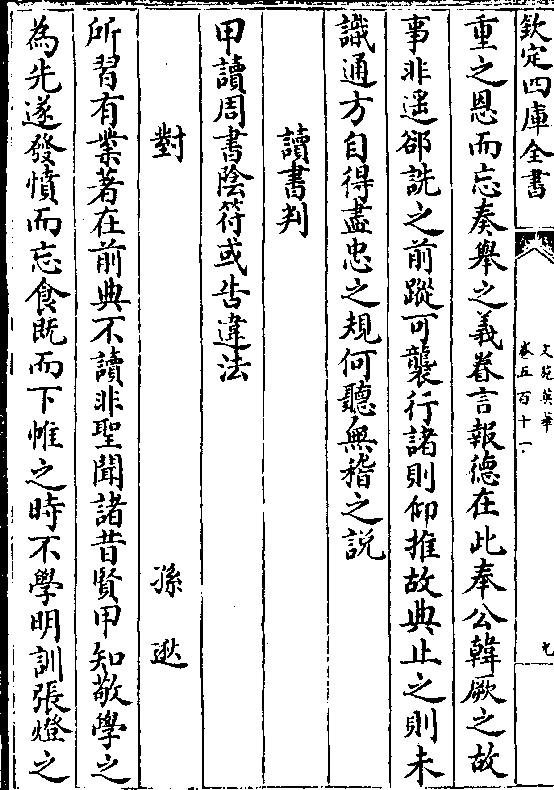 欽定四庫全書
文苑英華
卷五百十一
九
重之恩而忘奏舉之義眷言報德在此奉公韓厥之故
事非遥郤詵之前蹤可襲行諸則仰推故典止之則未
識通方自得盡忠之規何聽無稽之説
讀書判
甲讀周書陰符或告違法
對
孫逖
所習有業著在前典不讀非聖聞諸昔賢甲知敬學之
為先遂發憤而忘食既而下帷之時不學明訓張燈之